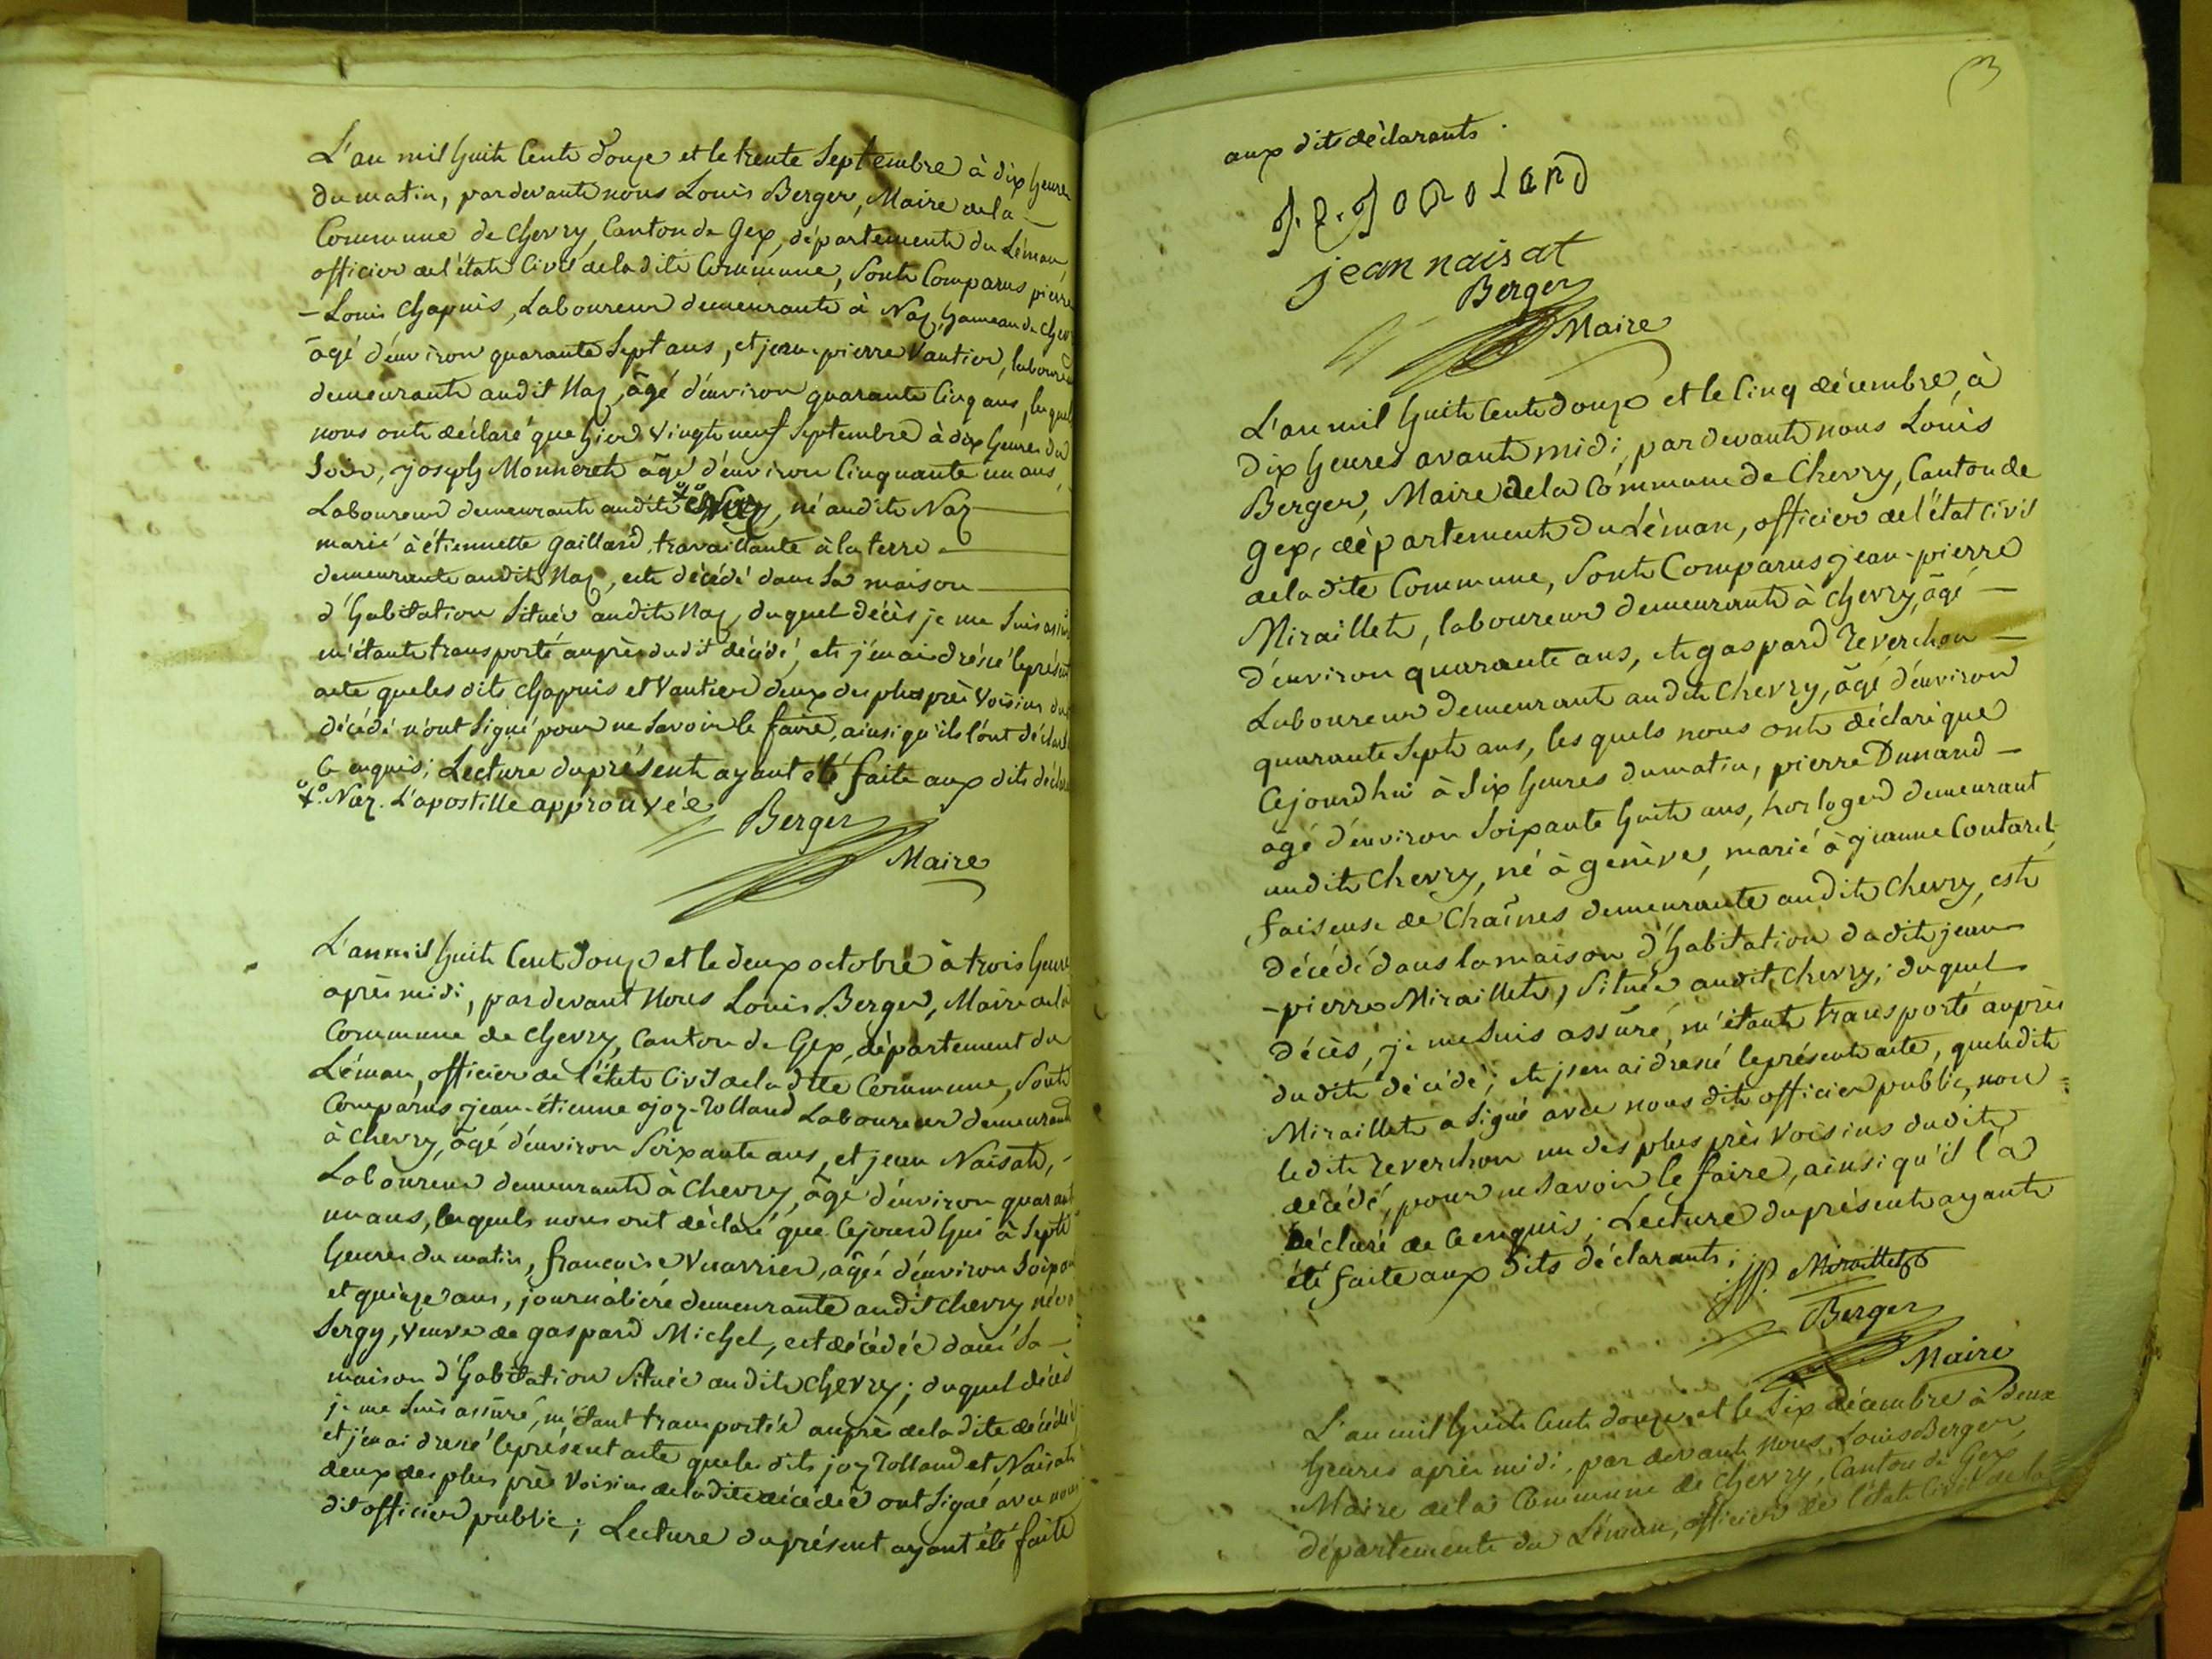 L'an mil huit cent douze et le trente Septembre à dix heures
du matin, pardevant nous Louis Berger, Maire de la
Commune de Chevry, Canton de Gex, département du Léman,
officier de l'état Civil de la dite Commune, Sont Comparus pierre
- Louis Chapuis, Laboureur demeurant à Naz, hameau de Chev
âgé d'environ quarante Sept ans, et jean-pierre Vautier, laboureur
demeurant audit Naz, âgé d'environ quarante Cinq ans, lesquels
nous ont déclaré que hier vingt neuf Septembre à dix heures du
Soir, joseph Monneret âgé d'environ Cinquante un ans,
Laboureur demeurant audit , né audit Naz
marié à étiennette gaillard, travaillante à la terre
demeurante audit Naz, est décédé dans Sa maison
d'habitation Située audit Naz, duquel décès je me Suis assuré
m'étant transporté auprès dudit décédé, et j'en ai dressé le présent
acte que les dits Chapuis et Vautier deux des plus près Voisins du
décédé n'ont Signé pour ne Savoir le faire, ainsi qu'ils l'ont déclaré
Ce enquis; Lecture du présent ayant été faite aux dits décla
Naz. L'apostille approuvée
Berger
Maire
L'an mil huit Cent douze et le deux octobre à trois heures
après midi, pardevant Nous Louis Berger, Maire de la
Commune de Chevry, Canton de Gex, département du
Léman, officier de l'état Civil de la dite Commune, Sont
Comparus jean-étienne joz-Rolland Laboureur demeurant
à Chevry, âgé d'environ Soixante ans, et jean Naisat,
Laboureur demeurant à Chevry, âgé d'environ quarante
un ans, lesquels nous ont déclaré que Cejourd'hui à Sept
heures du matin, françoise Vuarrier, âgée d'environ Soixan
et quinze ans, journalière demeurante audit Chevry née
Sergy, veuve de gaspard Michel, est décédée dans Sa
maison d'habitation Située audit Chevry; duquel décès
je me Suis assuré, m'étant transporté auprès de la dite décédée
et j'en ai dressé le présent acte que les dits joz Rolland et Naisat
deux des plus près Voisins de la dite décédée ont Signé avec nous
dit officier public; Lecture du présent ayant été faite
3
aux dits déclarants.
jean naisat
Berger
Maire
L'an mil huit Cent douze et le Cinq décembre, à
Dix heures avant midi, pardevant nous Louis
Berger, Maire de la Commune de Chevry, Canton de
Gex, département du Léman, officier de l'état Civil
de la dite Commune, Sont Comparus jean-pierre
Miraillet, laboureur demeurant à Chevry, âgé
d'environ quarante ans, et gaspard Reverchon
Laboureur demeurant audit Chevry, âgé d'environ
quarante Sept ans, lesquels nous ont déclaré que
Cejourd'hui à Six heures du matin, pierre Dunand
âgé d'environ Soixante huit ans, horloger demeurant
audit Chevry, né à genève, marié à jeanne Coutaret,
faiseuse de Chaînes demeurante audit Chevry, est
décédé dans la maison d'habitation dudit jean
- pierre Miraillet, Située audit Chevry; duquel
décès, je me Suis assuré, m'étant transporté auprès
du dit décédé; et j'en ai dressé le présent acte, que le dit
Miraillet a Signé avec nous dit officier public, non
le dit Reverchon un des plus près Voisins dudit
décédé, pour ne Savoir le faire, ainsi qu'il l'a
déclaré de Ce enquis; Lecture du présent ayant
été faite aux dits déclarants;
Miraillet
Berger
Maire
L'an mil huit Cent douze, et le Six décembre à deux
heures après midi, par devant Nous Louis Berger,
Maire de la Commune de Chevry, Canton de Gex
département du Léman, officier de l'état Civil de la